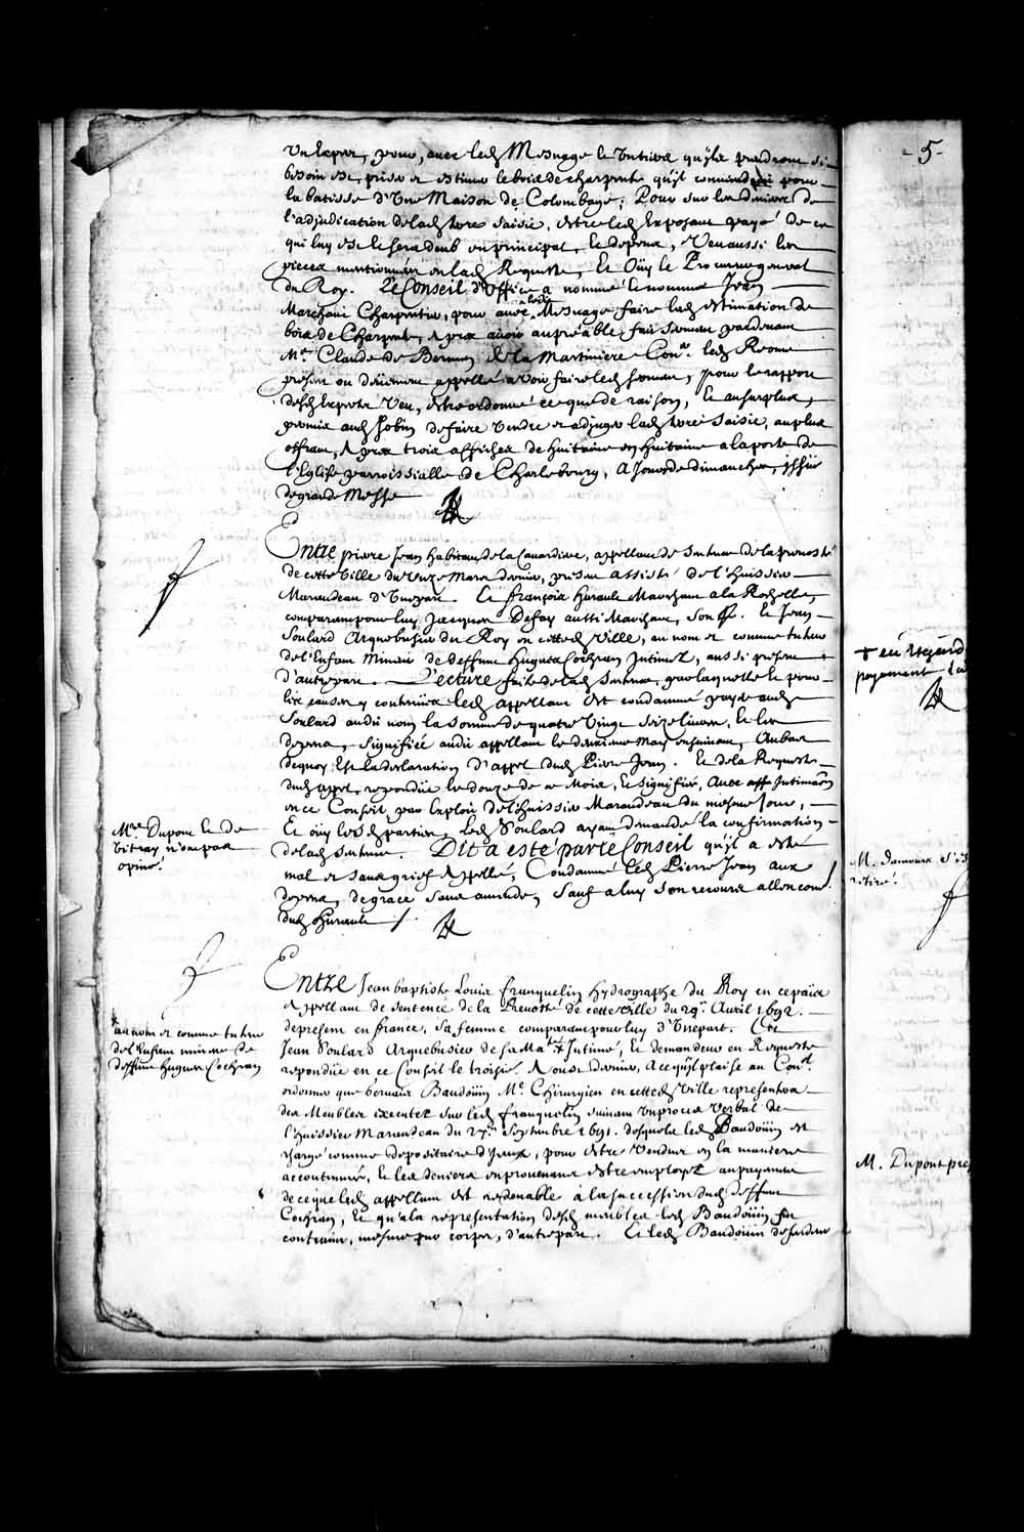 Un Expert, pour, avec led. Mesnage le Tutrice qu'ils prendront si
besoin est, priser et estimer le bois de charpente qu'il conviendra pour
la batisse d'Une Maison de Colombage; Pour sur les deniers de
l'adjudication de lad. terre saisie, estre led. Exposant payé de ce
qui luy est et sera deub en principal, et despens, Veu aussi les
pieces mentionnées en lad. Requeste, Et Oüy le Procureur general
du Roy. Le Conseil d'office a nommé le nommé Jean
Marchant Charpentier, pour avec led. Mesnage faire lad. estimation de
bois de Charpente, apres avoir au preäble fait serment pardevant
Me. Claude de Bermen de la Martiniere Coner. led. Reome
present ou deüement appellé a voir faire led. serment, pour le rapport
desd. Experts Veu, estre ordonné ce que de raison, Et au surplus,
permis aud. Jobin de faire vendre et adjuger lad. terre saisie, au plus
offrant, apres trois affiches de huitaine en huitaine a la porte de
l'Eglise parroissialle de Charlebourg, a Jours de dimanches, issüe
de grande Messe
Entre pierre Jean habitant de la Canardiere, appellant de Sentence de la prevosté
de cette Ville du Unze Mars dernier, present assisté de l'huissier
Marandeau d'Une part. Et françois hurault Marchant a la Rochelle,
comparant pour luy Jacques Defay aussi Marchant, son. Et Jean
Soulard Arquebusier du Roy en cetted. Ville, au nom et comme tuteur
de l'Enfant Mineur de deffunt hugues Cochran Intimez, aussi present
d'autre part. Lecture faite de lad. Sentence, par laquelle et pour
les causes y contenües led. appellant est condamné payer aud.
Soulard audit nom la somme de quatre Vingt seize livres, et les
despens, signifiée audit appellant le deuxieme May ensuivant, Au bas
de quoy, Est la declaration d'appel dud. Pierre Jean. Et de la Requeste
dud. appel, repondüe le douze de ce Mois, Et signifiée, Avec Intimaon
en ce Conseil, par Exploit de l'huissier Marandeau du mesme Jour,
Et oüy lesd. parties, Led. Soulard ayant demandé la confirmation
de lad. Sentence. Dit a esté par le Conseil qu'il a esté
mal et sans grief appellé, Condamné led. Pierre Jean aux
despens, de grace sans amende, Sauf a luy son recours allencontre
dud. Hurault
Mrs. Dupont et de
Vitray n'ont pas
opiné.
Entre Jean baptiste Louis franquelin hydrographe du Roy en ce païs
Appellant de Sentence de la Prevosté de cette Ville du 29e. Avril 1692.
de present en france, sa femme comparant pour luy d'Une part. Et
Jean Soulard Arquebusier de sa Mate. * Intimé, Et demandeur en Requeste
repondüe en ce Conseil le troisie. Aoust dernier, a ce qu'il plaise au Conel.
ordonner que Gervais Baudoüin Me. Chirurgien en cetted. Ville representera
des Meubles executez sur led. franquelin suivant un procez Verbal de
l'huissier Marandeau du 27e. Septembre 1691. desquels led. Baudoüin est
chargé comme depositaire d'Iceux, pour estre Vendus en la maniere
accoutumée, Et les deniers en provenans estre employez au payement
de ce que led. appellant est redevable à la succession dud. deffunt
Cochran, Et qu'a la representation desd. meubles led. Baudoüin fut
contraint, mesme par corps, d'autre part. Et led. Baudoüin defendeur
* au nom et comme tuteur
de l'Enfant mineur de
deffunt hugues Cochran
-5-
+ eu Regard
payement
M. damours s'est
retiré.
M. Dupont pre